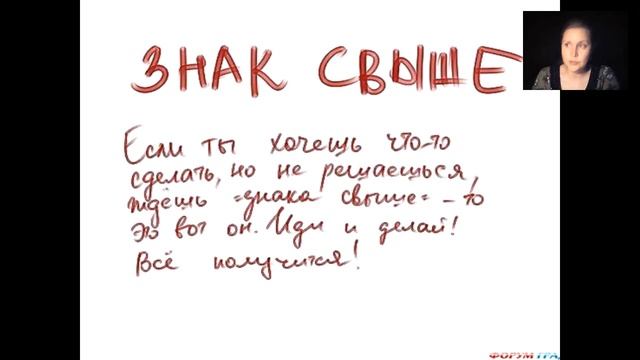 ЗНАК СВЫШЕ
Если ты хочешь что-то
сделать, но не решаешься,
ждёшь "знака свыше" - то
это вот он. Иди и делай!
Всё получится!
ФОРУМ ГРА